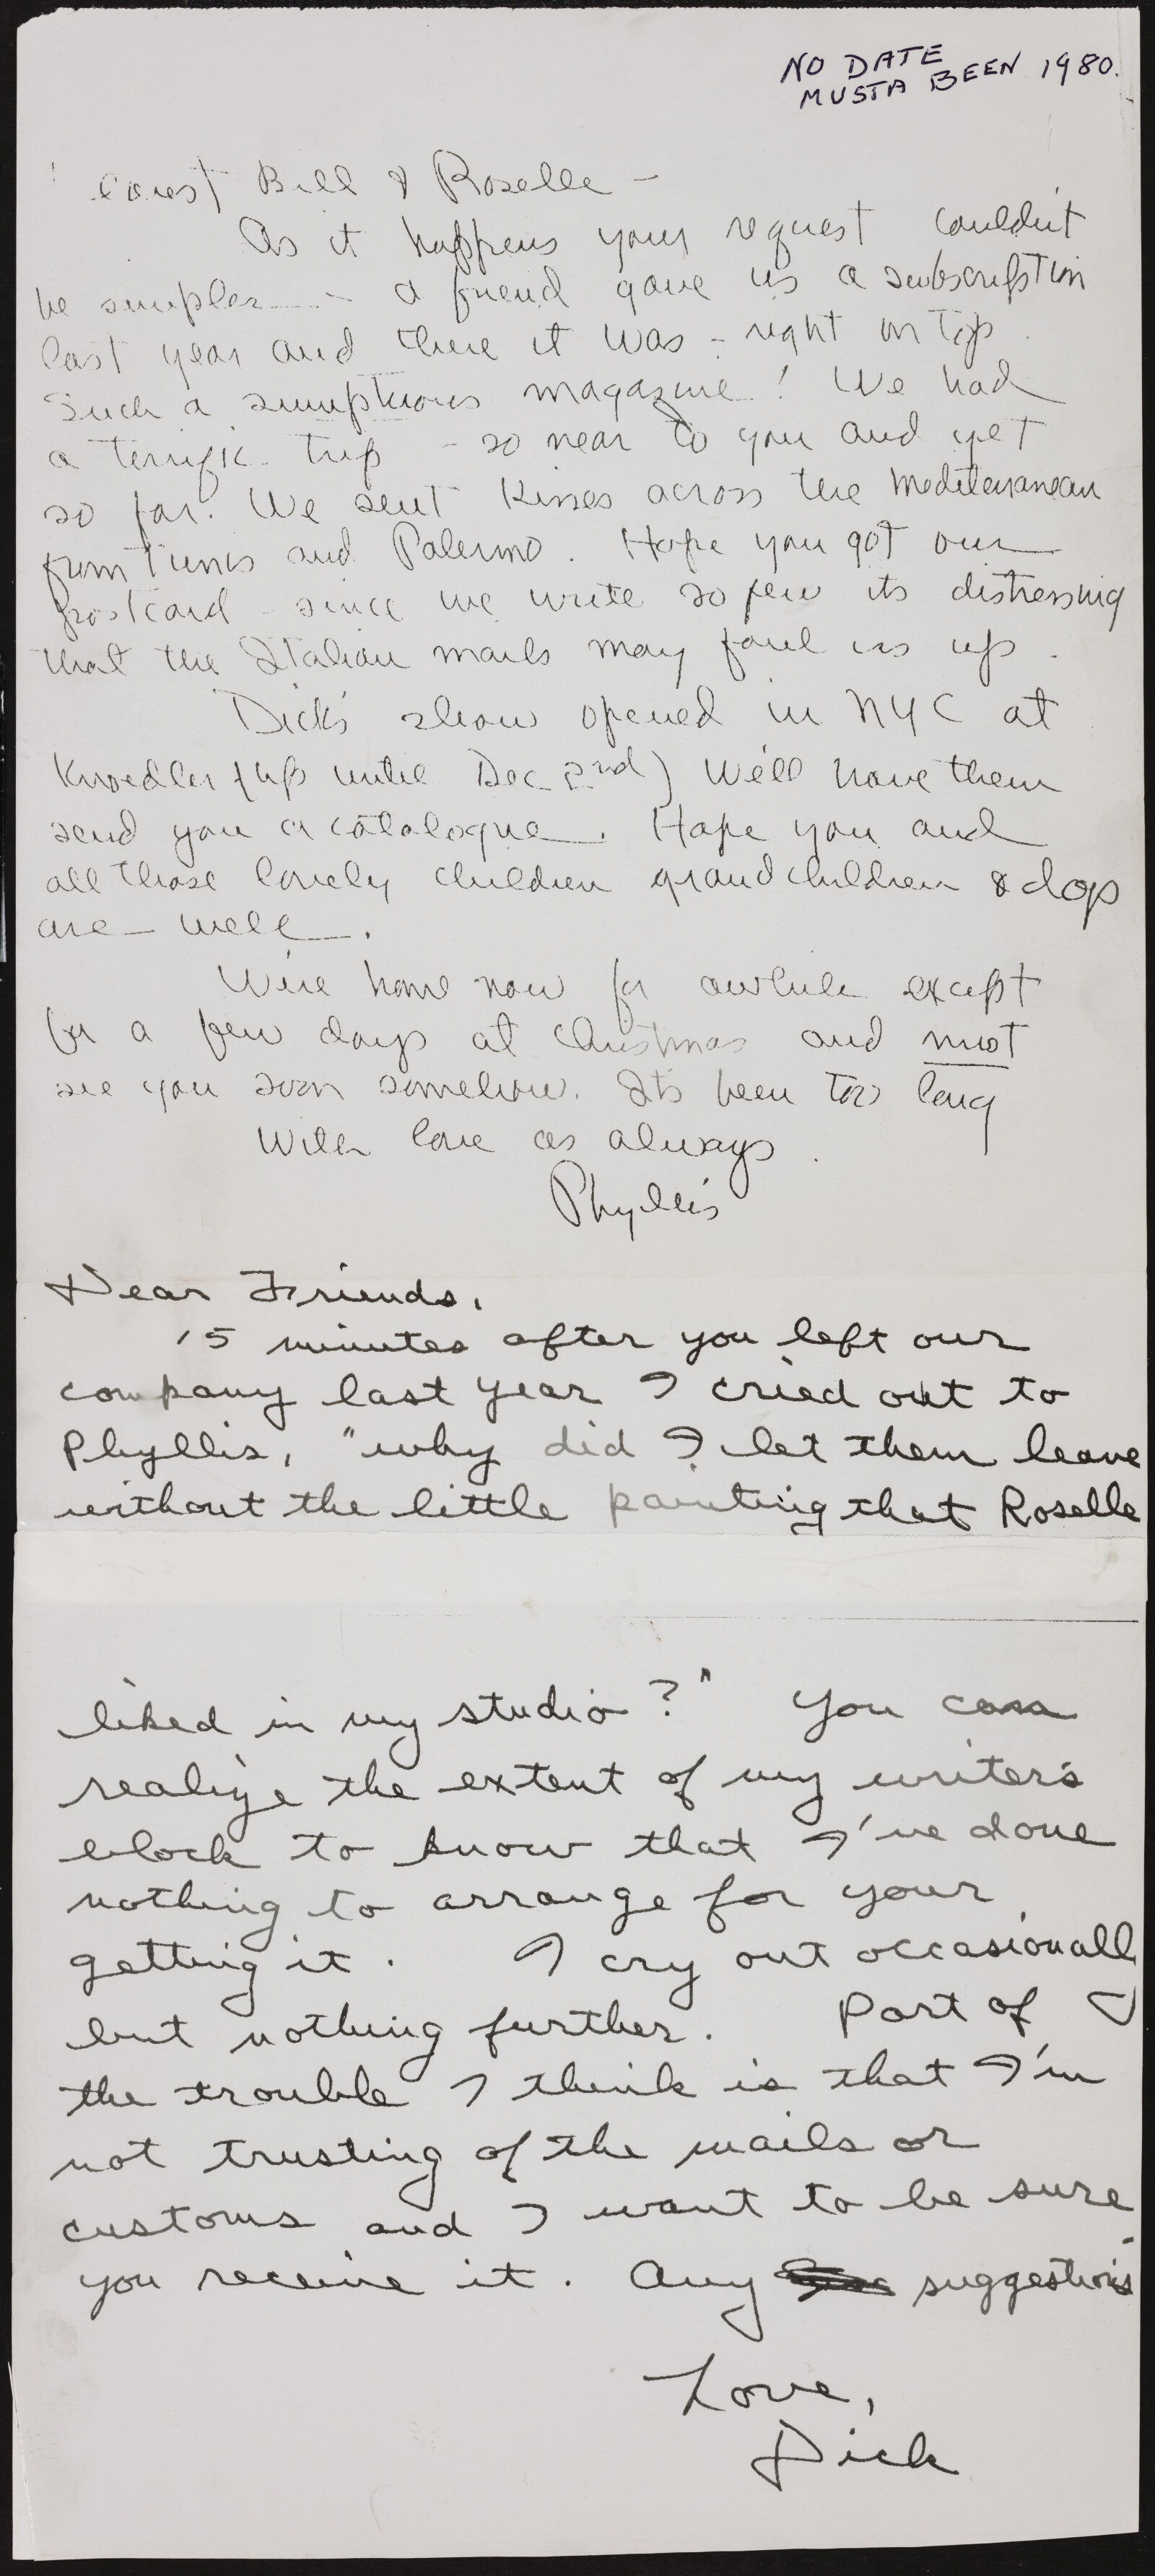 NO DATE
MUSTA BEEN 1980.
Bill & Roselle -
As it happens your request couldn't
be simpler - a friend gave us a subscription
last year and there it was - right on top.
Such a sumptuous magazine! We had
a terrific trip - so near to you and yet
so far. We sent kisses across the Mediteranean
from Tunis and Palermo. Hope you got our
postcard - since we write so few its distressing
that the Italian mails may foul us up.
Dick's show opened in NYC at
Knoedler (up until Dec 2nd) We'll have them
send you a catalogue. Hope you and
all those lovely children grandchildren & dop
are well.
We're home now for awhile except
for a few days at Christmas and must
see you soon somehow. Its been too long
With love as always.
Phyllis
Dear Friends,
15 minutes after you left our
company last year I cried out to
Phyllis, "why did I let them leave
without the little painting that Roselle
liked in my studio?" You can
realize the extent of my writer's
block to know that I've done
nothing to arrange for your
getting it. I cry out occasionally
but nothing further. Part of
the trouble I think is that I'm
not trusting of the mails or
customs and I want to be sure
you receive it. Any suggestions
Love,
Dick